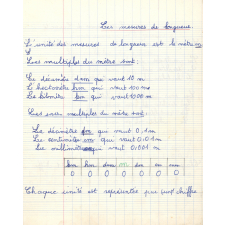 Les mesures de longueur.
L'unité des mesures de longueur est le mètre m
Les multiples du mètre sont:
Le décamètre dam qui vaut 10 m
L'hectomètre hm qui vaut 100 m
Le kilomètre km qui vaut 1000 m
Les sous multiples du mètre sont:
Le décimètre dm qui vaut 0,1m
Le centimètre cm qui vaut 0,01m
Le millimètre mm qui vaut 0,001 m
km hm dam m dm cm mm
0 0 0 0 0 0 0
Chaque unité est représentée par un chiffre.